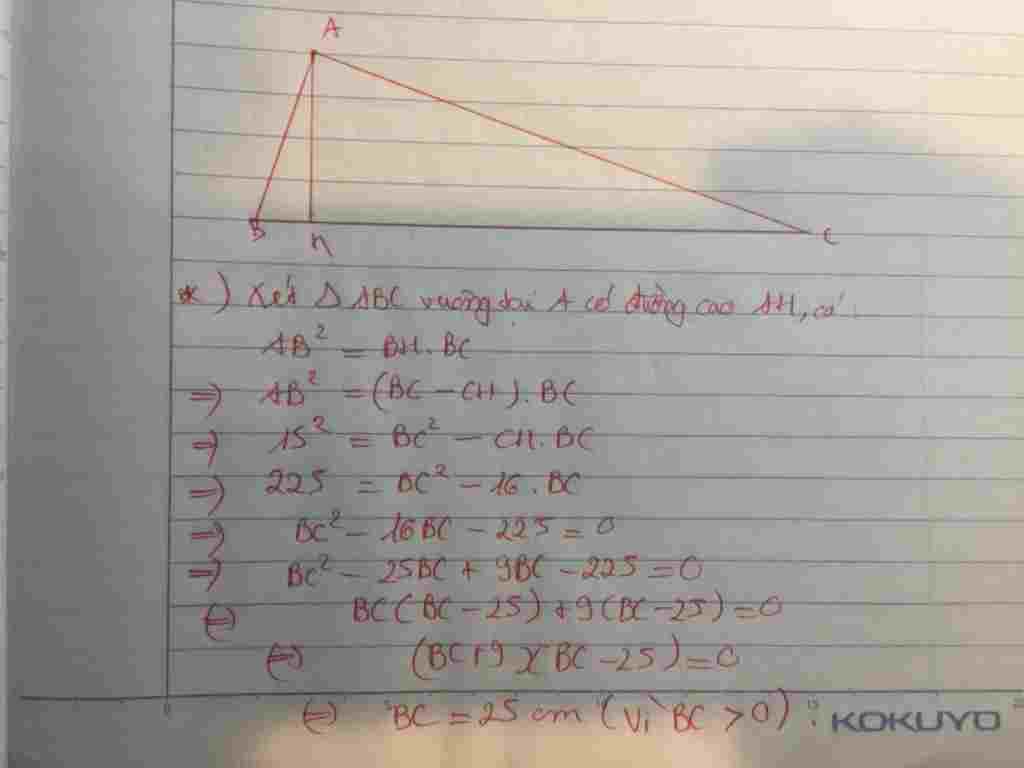 A
B H C
*) Xét Δ ABC vuông tại A có đường cao AH, có:
AB² = BH.BC
=> AB² = (BC - CH).BC
=> 15² = BC² - CH.BC
=> 225 = BC² - 16.BC
=> BC² - 16BC - 225 = 0
=> BC² - 25BC + 9BC - 225 = 0
(=) BC(BC - 25) + 9(BC - 25) = 0
(=) (BC + 9)(BC - 25) = 0
(=) BC = 25 cm (Vì BC > 0).
KOKUYO